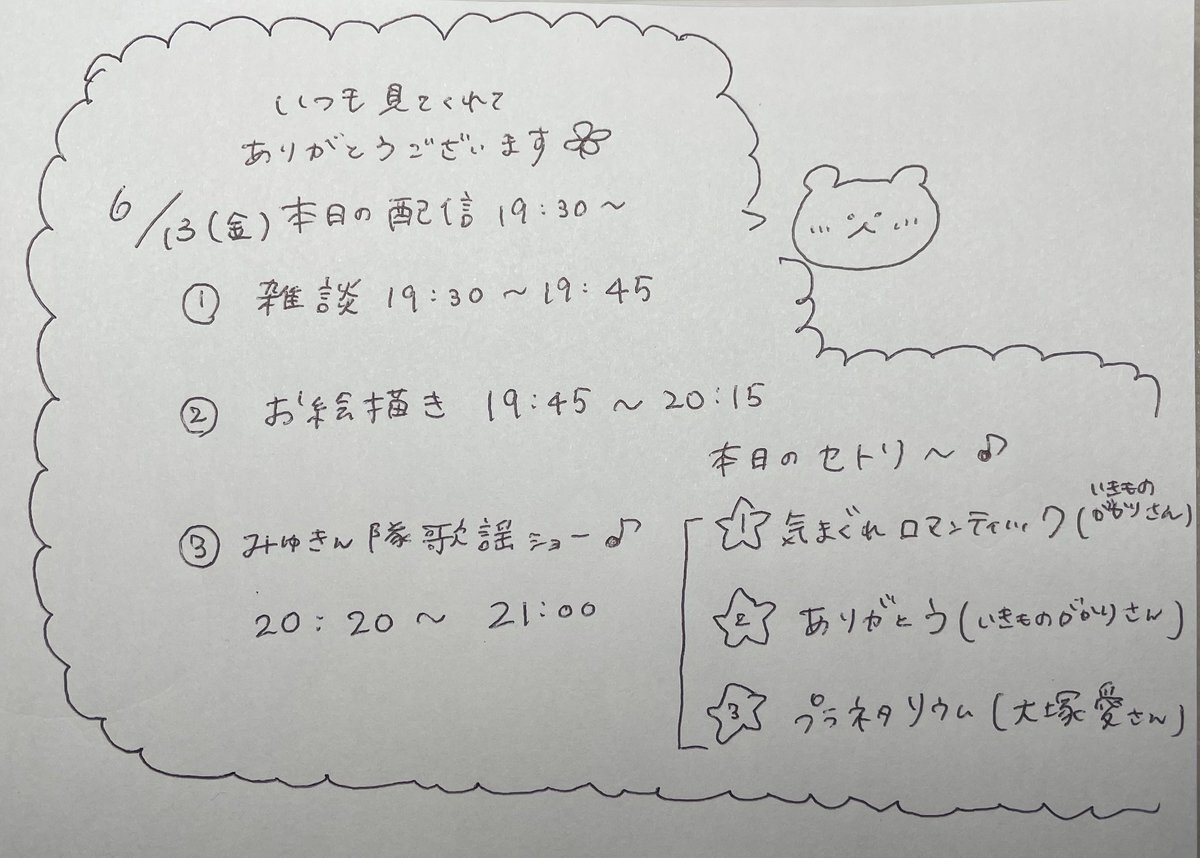 いつも見てくれて
ありがとうございます
6/13(金)本日の配信 19:30〜
① 雑談 19:30〜19:45
② お絵描き 19:45〜20:15
③ みゆきん隊歌謡ショー♪
20:20〜 21:00
本日のセトリ〜♪
1 気まぐれロマンティック(いきものがかりさん)
2 ありがとう(いきものがかりさん)
3 プラネタリウム(大塚愛さん)